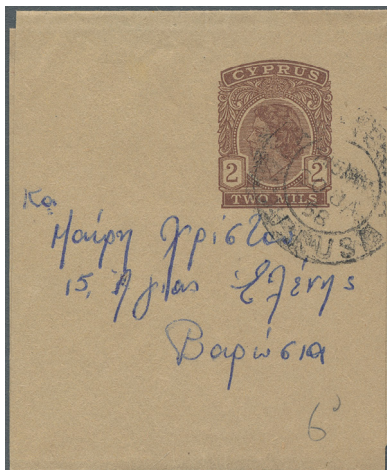 CYPRUS
2 2
TWO MILS
Κα
Μαίρη Χρίστου
15, Αγίας Ελένης
Βαρώσια
6